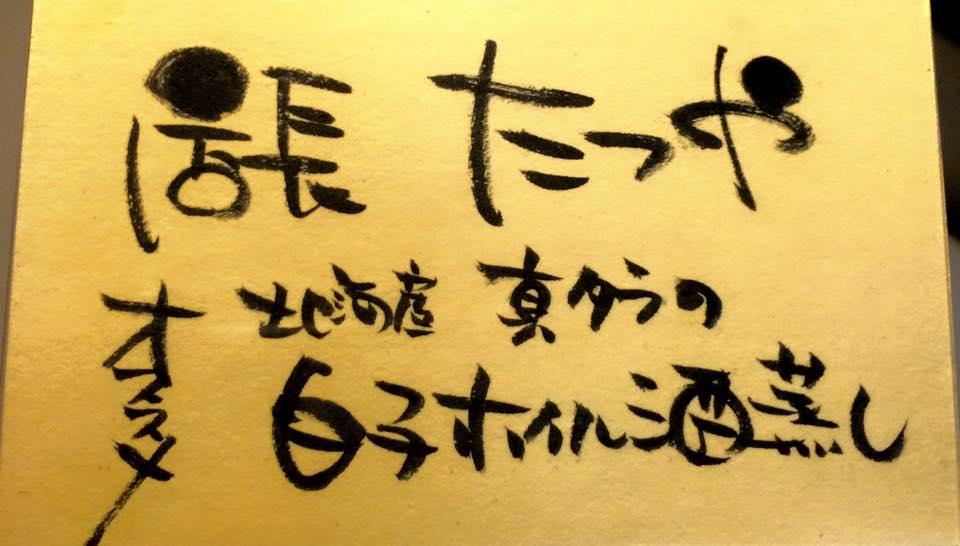 店長 たつや
オススメ
北海産 真タラの
白子ホイル酒蒸し